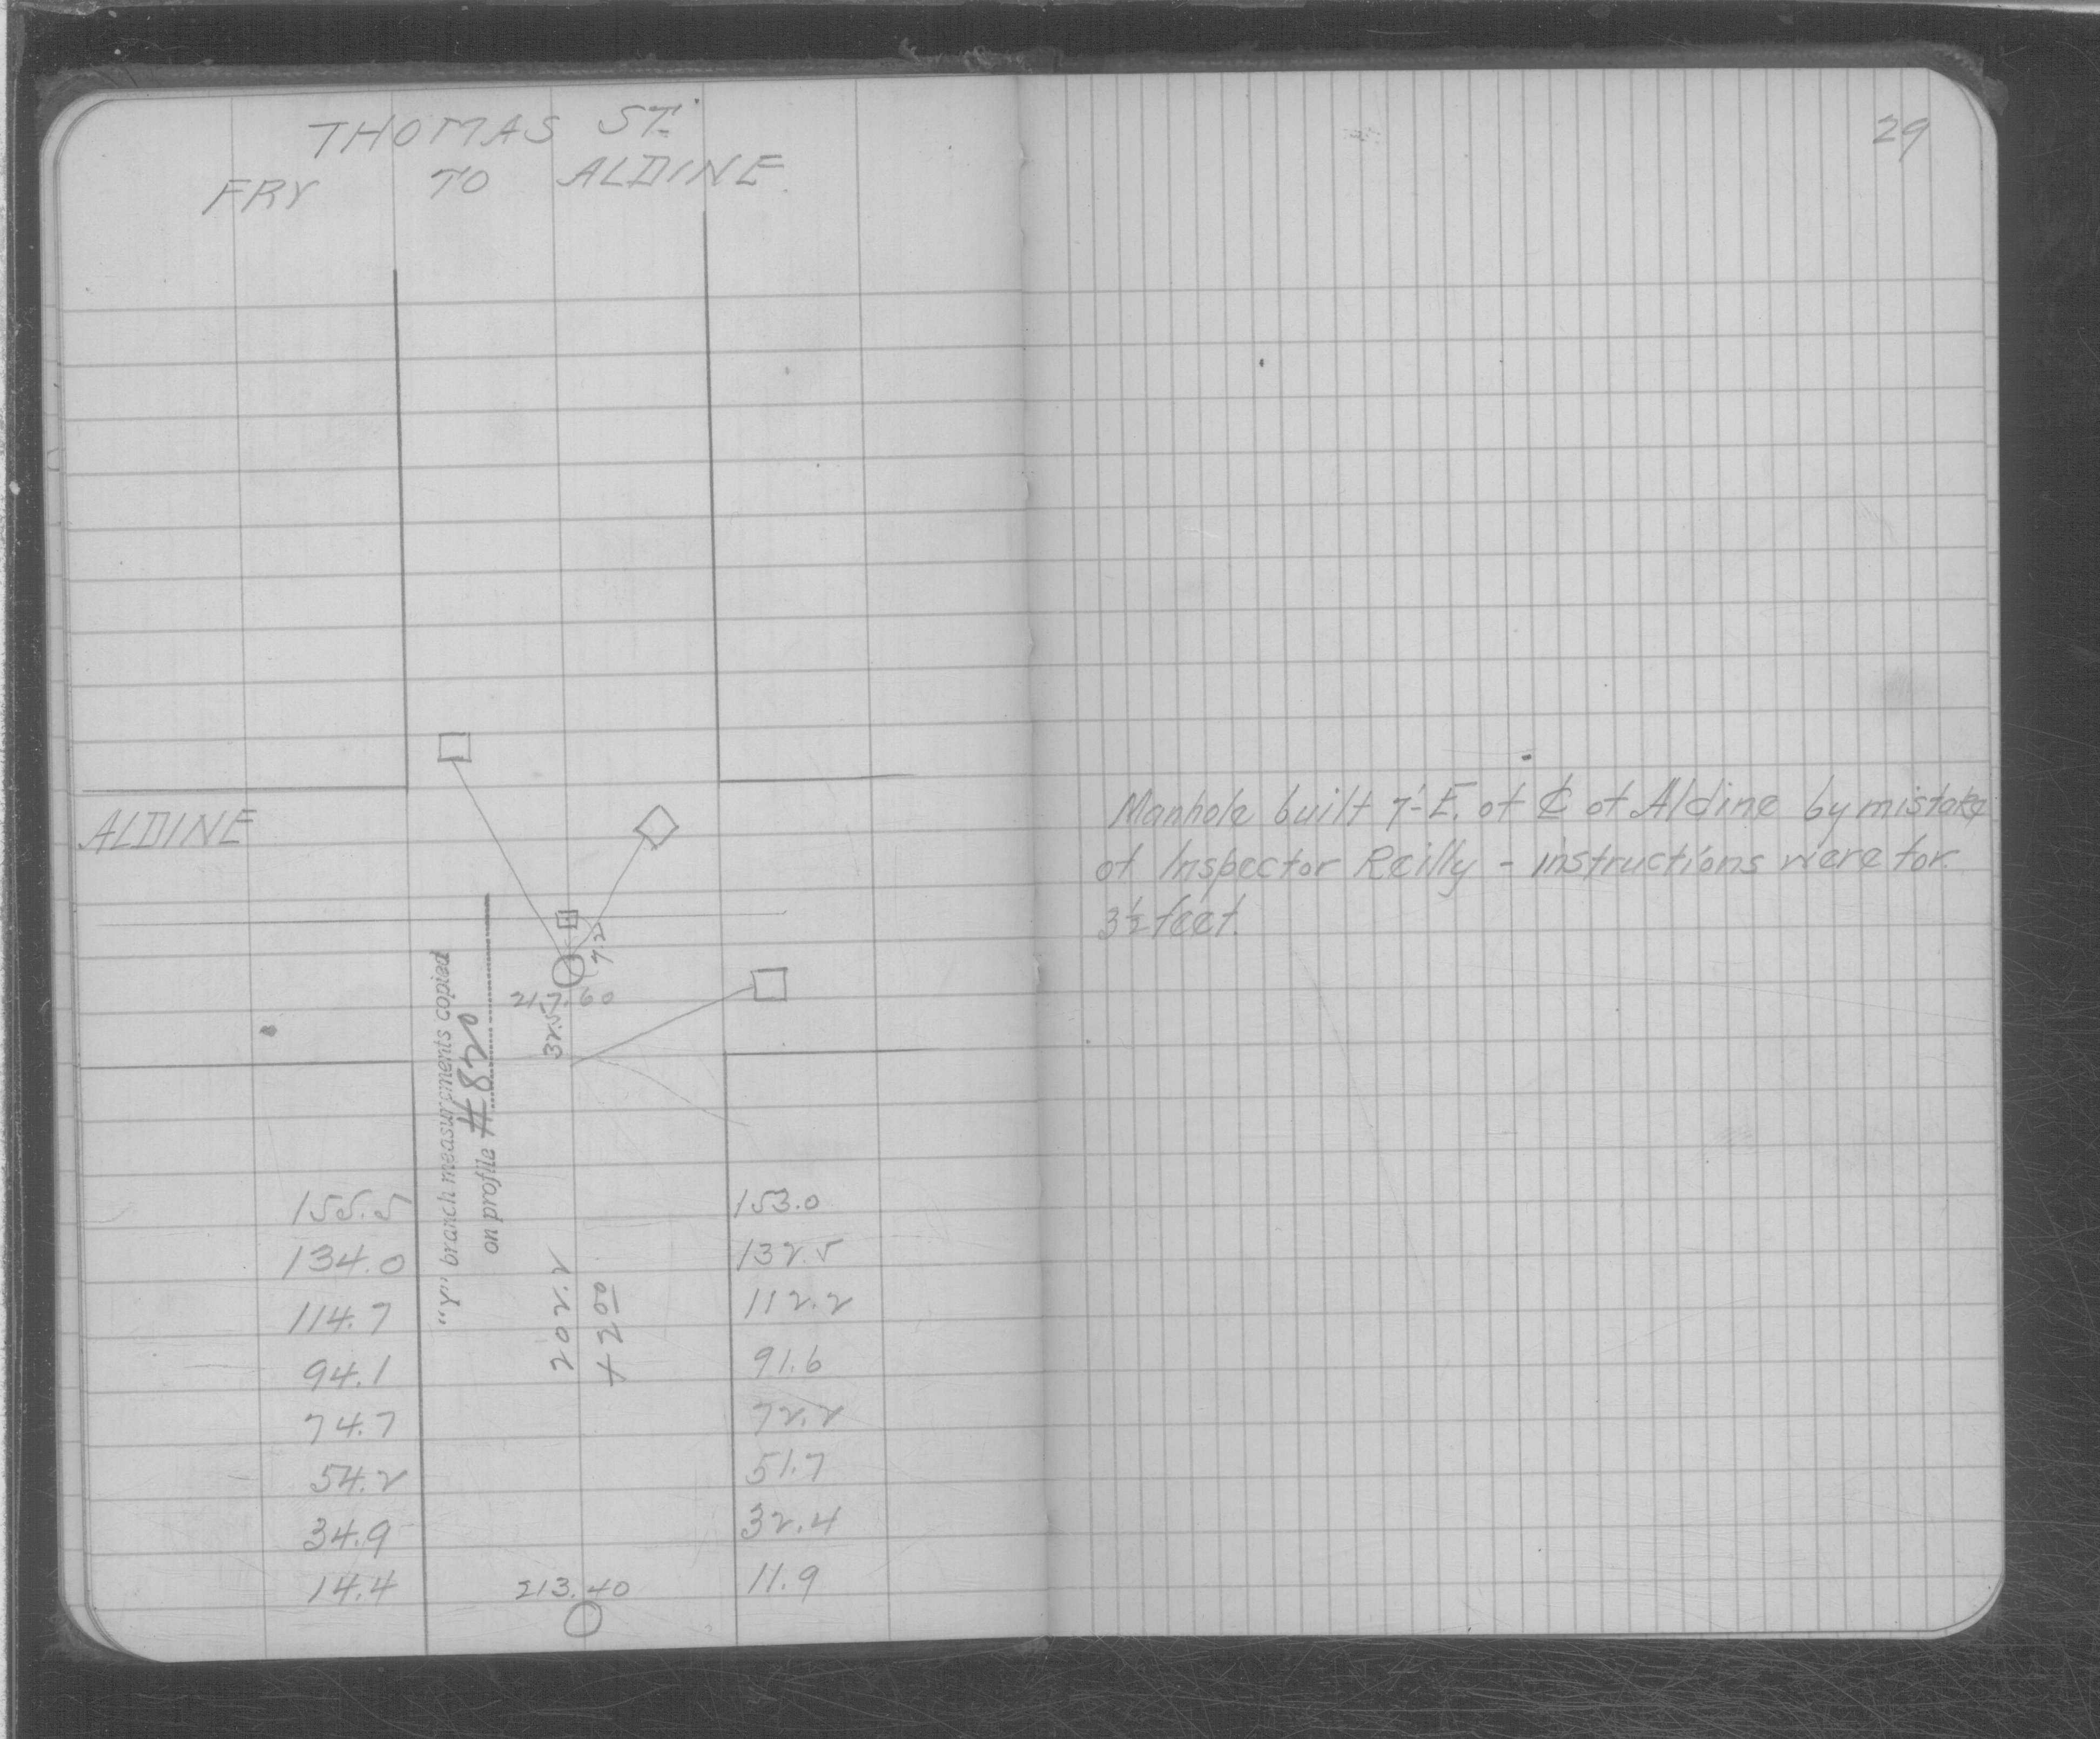 THOMAS ST.
FRY TO ALDINE
29
ALDINE
Manhole built 7'-E. of ℄ of Aldine by mistake
of Inspector Reilly - instructions were for
3½ feet.
7.2
217.60
32.5
"Y" branch measurements copied
on profile #820
202.2
+200
155.5 153.0
134.0 132.5
114.7 112.2
94.1 91.6
74.7 72.2
54.2 51.7
34.9 32.4
14.4 213.40 11.9